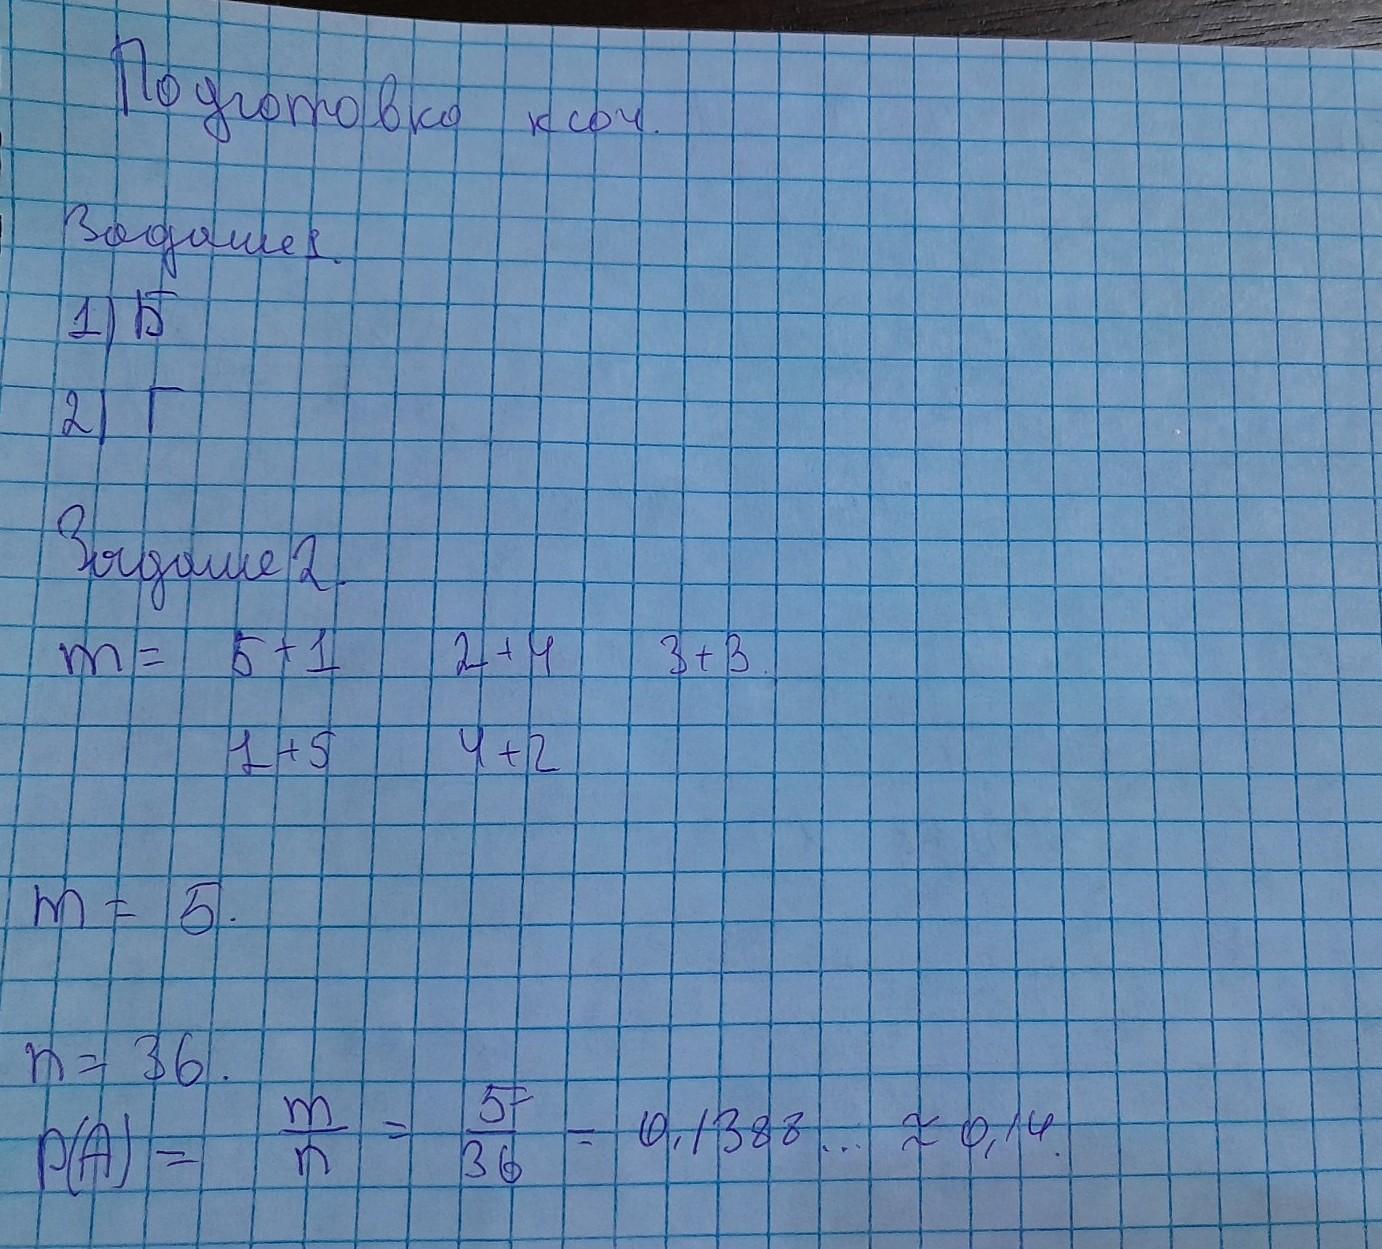 Подготовка к соч.
Задание 1.
1) Б
2) Г
Задание 2.
m = 5+1 2+4 3+3.
1+5 4+2
m = 5.
n = 36.
P(A) = m/n = 5/36 = 0,1388... ≈ 0,14.